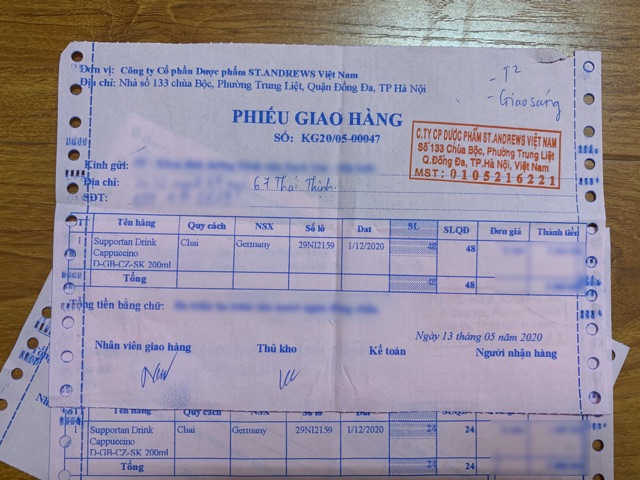 Đơn vị: Công ty Cổ phần Dược phẩm ST.ANDREWS Việt Nam
Địa chỉ: Nhà số 133 chùa Bộc, Phường Trung Liệt, Quận Đống Đa, TP Hà Nội
- T2
- Giao sáng
PHIẾU GIAO HÀNG
SỐ: KG20/05-00047
C.TY CP DƯỢC PHẨM ST.ANDREWS VIỆT NAM
Số 133 Chùa Bộc, Phường Trung Liệt
Q.Đống Đa, TP.Hà Nội, Việt Nam
MST: 0105216221
Kính gửi:
Địa chỉ: 67 Thái Thịnh
SĐT:
Tên hàng Quy cách NSX Số lô Dat SL SLQĐ Đơn giá Thành tiền
1 Supportan Drink Chai Germany 29NI2159 1/12/2020 48 48
Cappuccino
D-GB-CZ-SK 200ml
Tổng 48 48
Tổng tiền bằng chữ:
Ngày 13 tháng 05 năm 2020
Nhân viên giao hàng Thủ kho Kế toán Người nhận hàng
Tên hàng Quy cách NSX Số lô Dat SL SLQĐ Đơn giá Thành tiền
1 Supportan Drink Chai Germany 29NI2159 1/12/2020 24 24
Cappuccino
D-GB-CZ-SK 200ml
Tổng 24 24